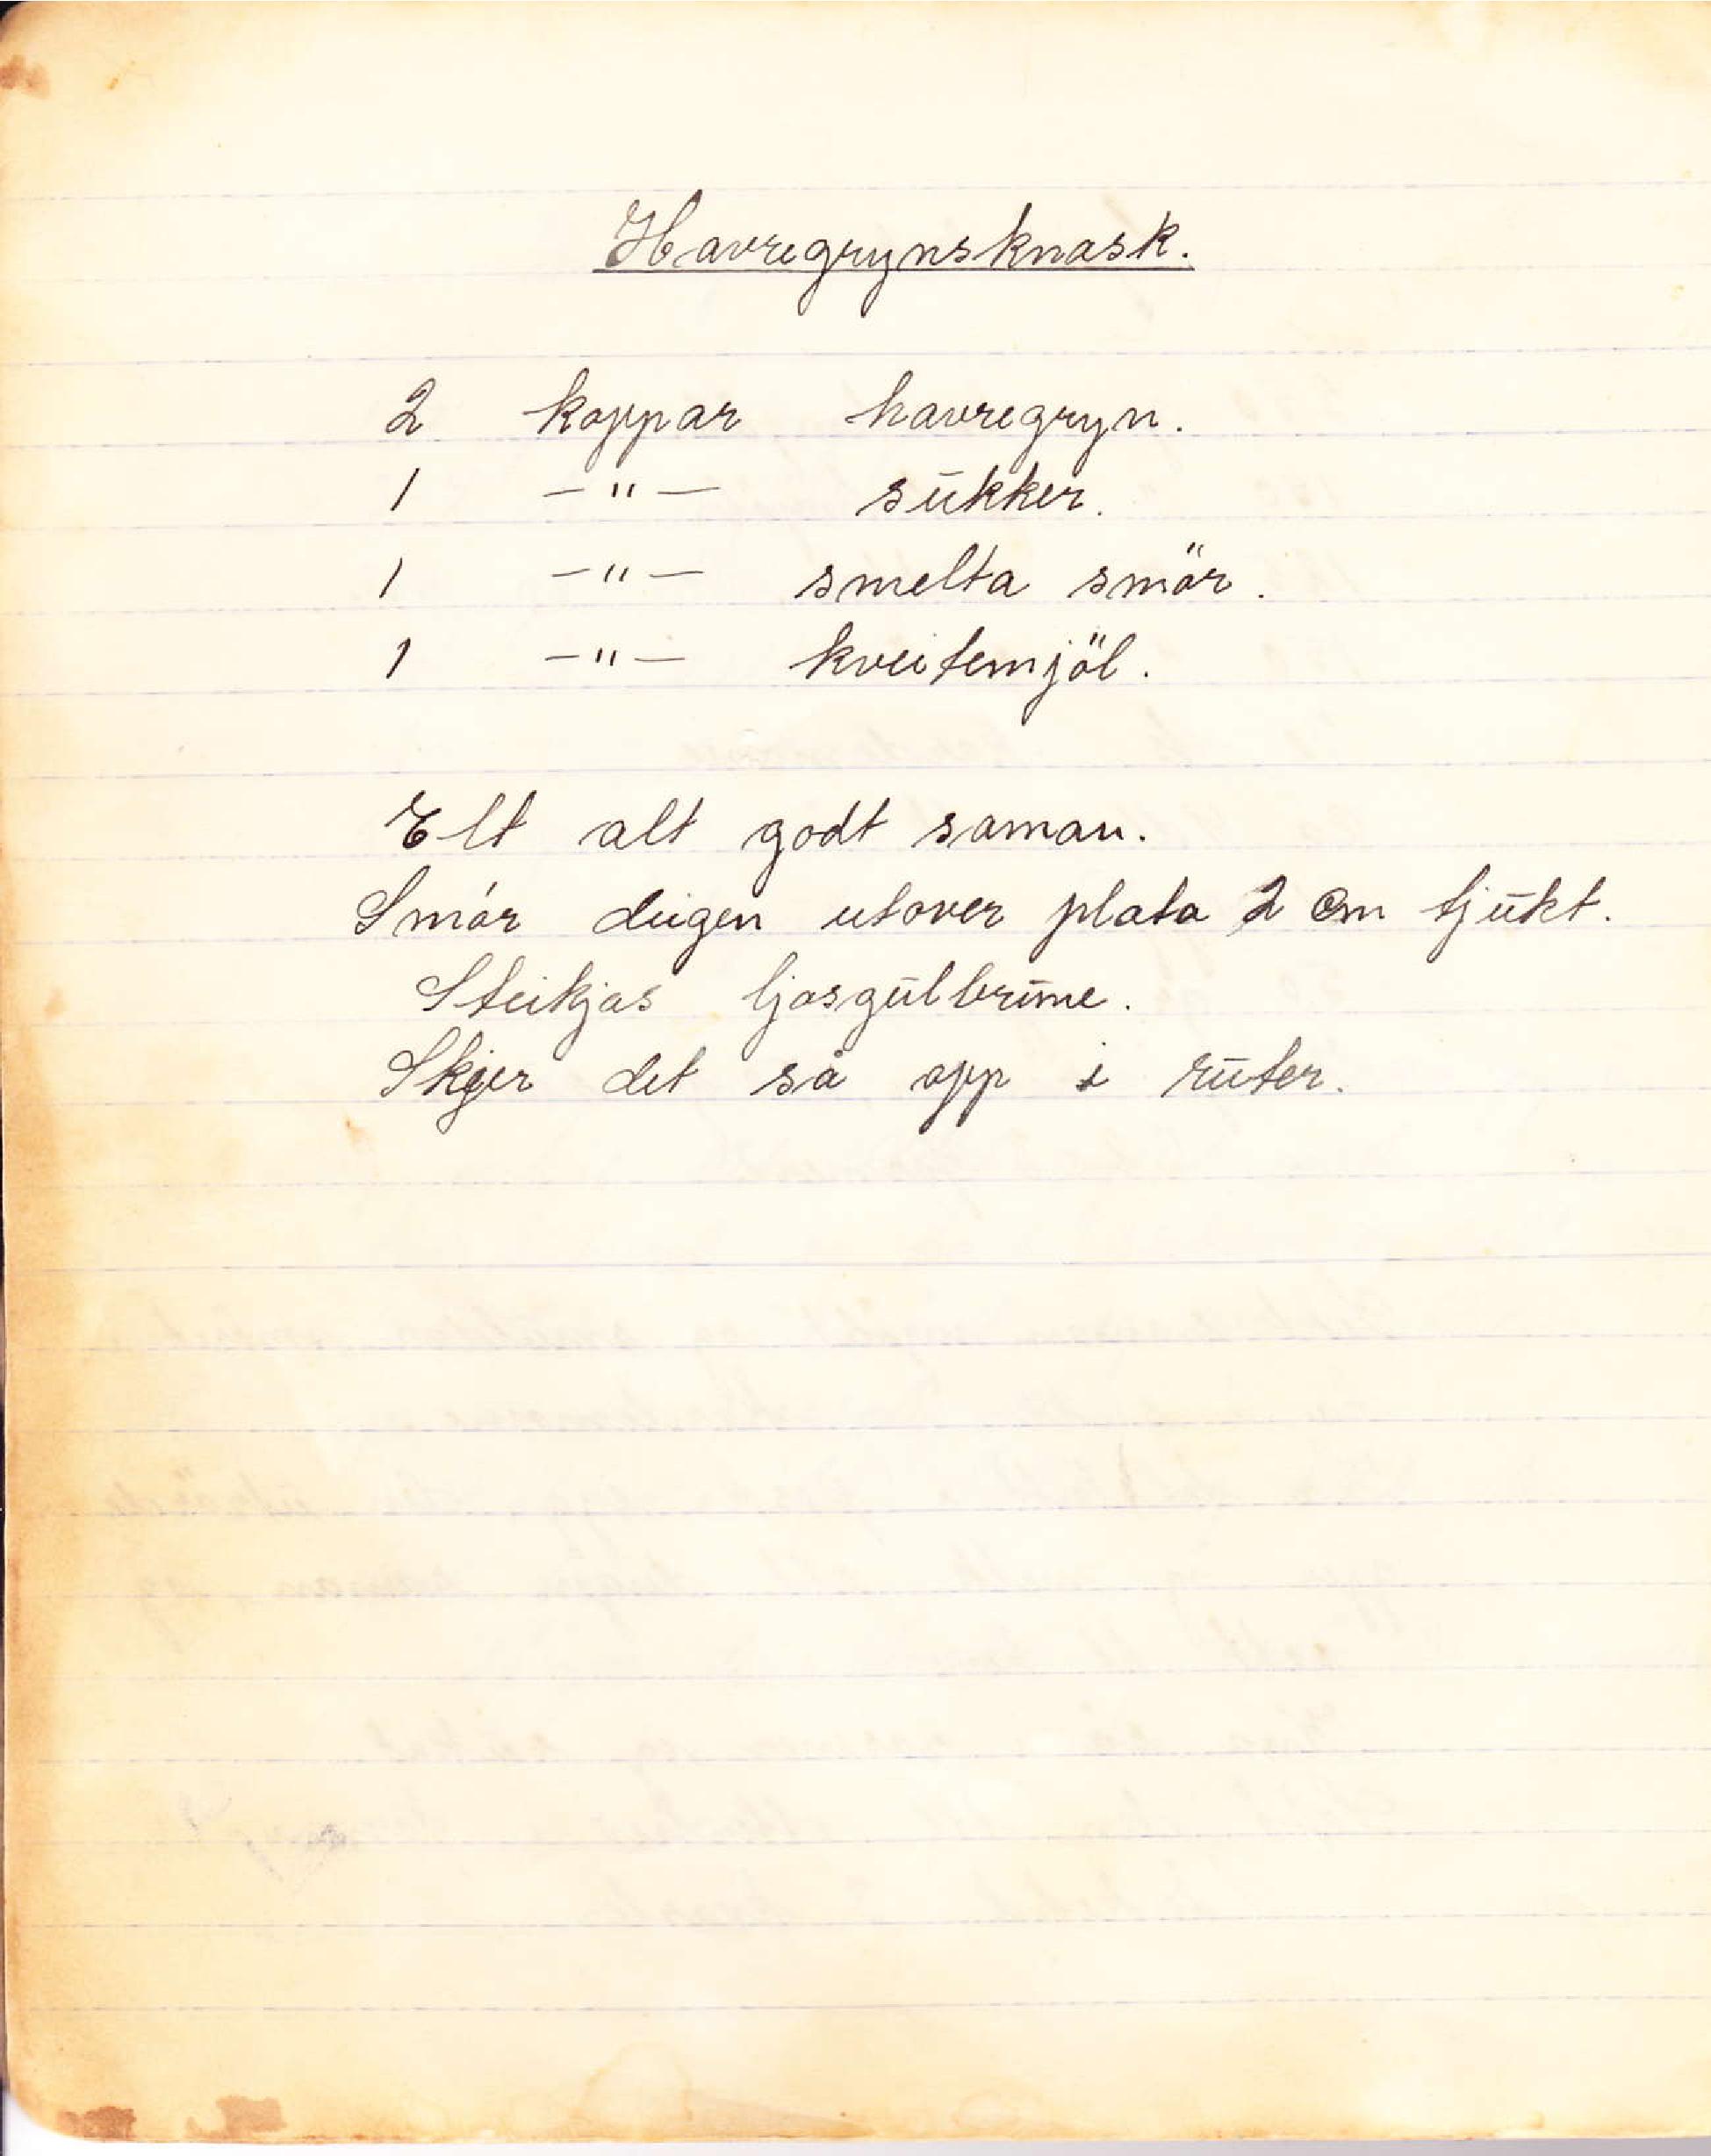 Havregrynsknask.
2 koppar havregryn.
1 —"— sukker.
1 —"— smelta smör.
1 —"— kveitemjöl.
Elt alt godt saman.
Smór deigen utover plata 2 cm tjukt.
Steikjas ljosgulbrune.
Skjer det så opp i ruter.